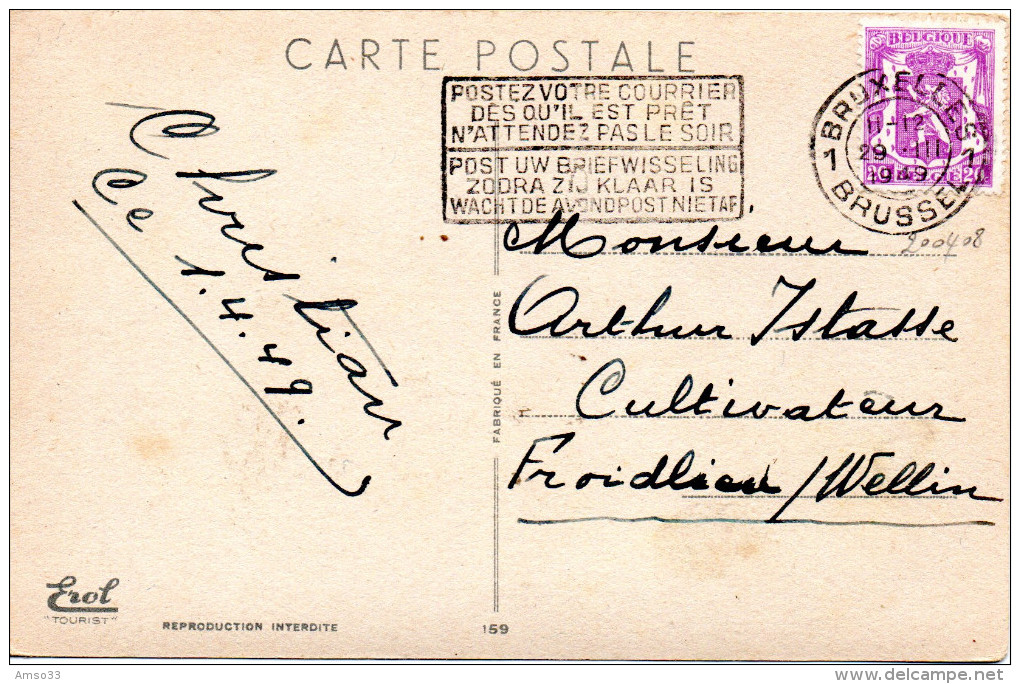 CARTE POSTALE
BELGIQUE
POSTEZ VOTRE COURRIER
DÈS QU'IL EST PRÊT
N'ATTENDEZ PAS LE SOIR
POST UW BRIEFWISSELING
ZODRA ZIJ KLAAR IS
WACHT DE AVONDPOST NIET AF
BRUXELLES
11-12
29 III
1949
1 1
BRUSSEL
200408
Christian
Ce 1.4.49.
Monsieur
Arthur Istasse
Cultivateur
Froidlieu / Wellin
FABRIQUÉ EN FRANCE
Erol
"TOURIST"
REPRODUCTION INTERDITE
159
Amso33
delcampe.net